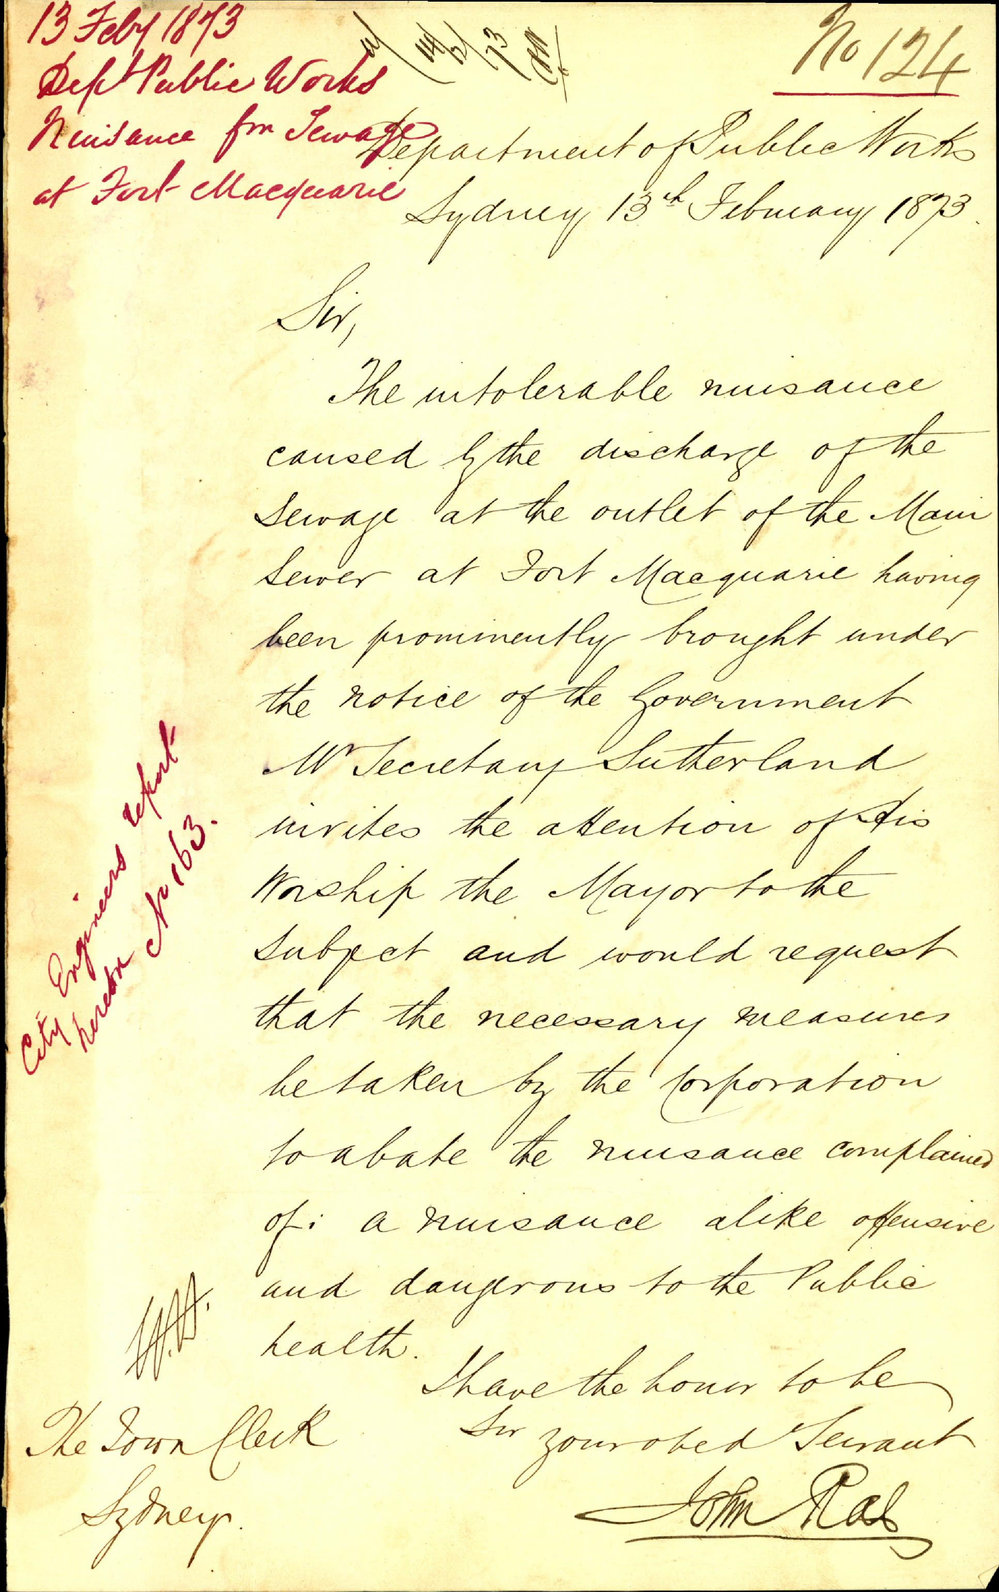 13 Feby 1873
Dept Public Works
Nuisance fm Sewage
at Fort Macquarie
No 124
Department of Public Works
Sydney 13th February 1873.
Sir,
The intolerable nuisance
caused by the discharge of the
Sewage at the outlet of the Main
Sewer at Fort Macquarie having
been prominently brought under
the notice of the Government
Mr Secretary Sutherland
invites the attention of His
Worship the Mayor to the
subject and would request
that the necessary measures
be taken by the Corporation
to abate the nuisance complained
of: a nuisance alike offensive
and dangerous to the Public
health.
I have the honor to be
Sir
your obed Servant
John Rae
The Town Clerk
Sydney.
City Engineers report
hereon No 163.